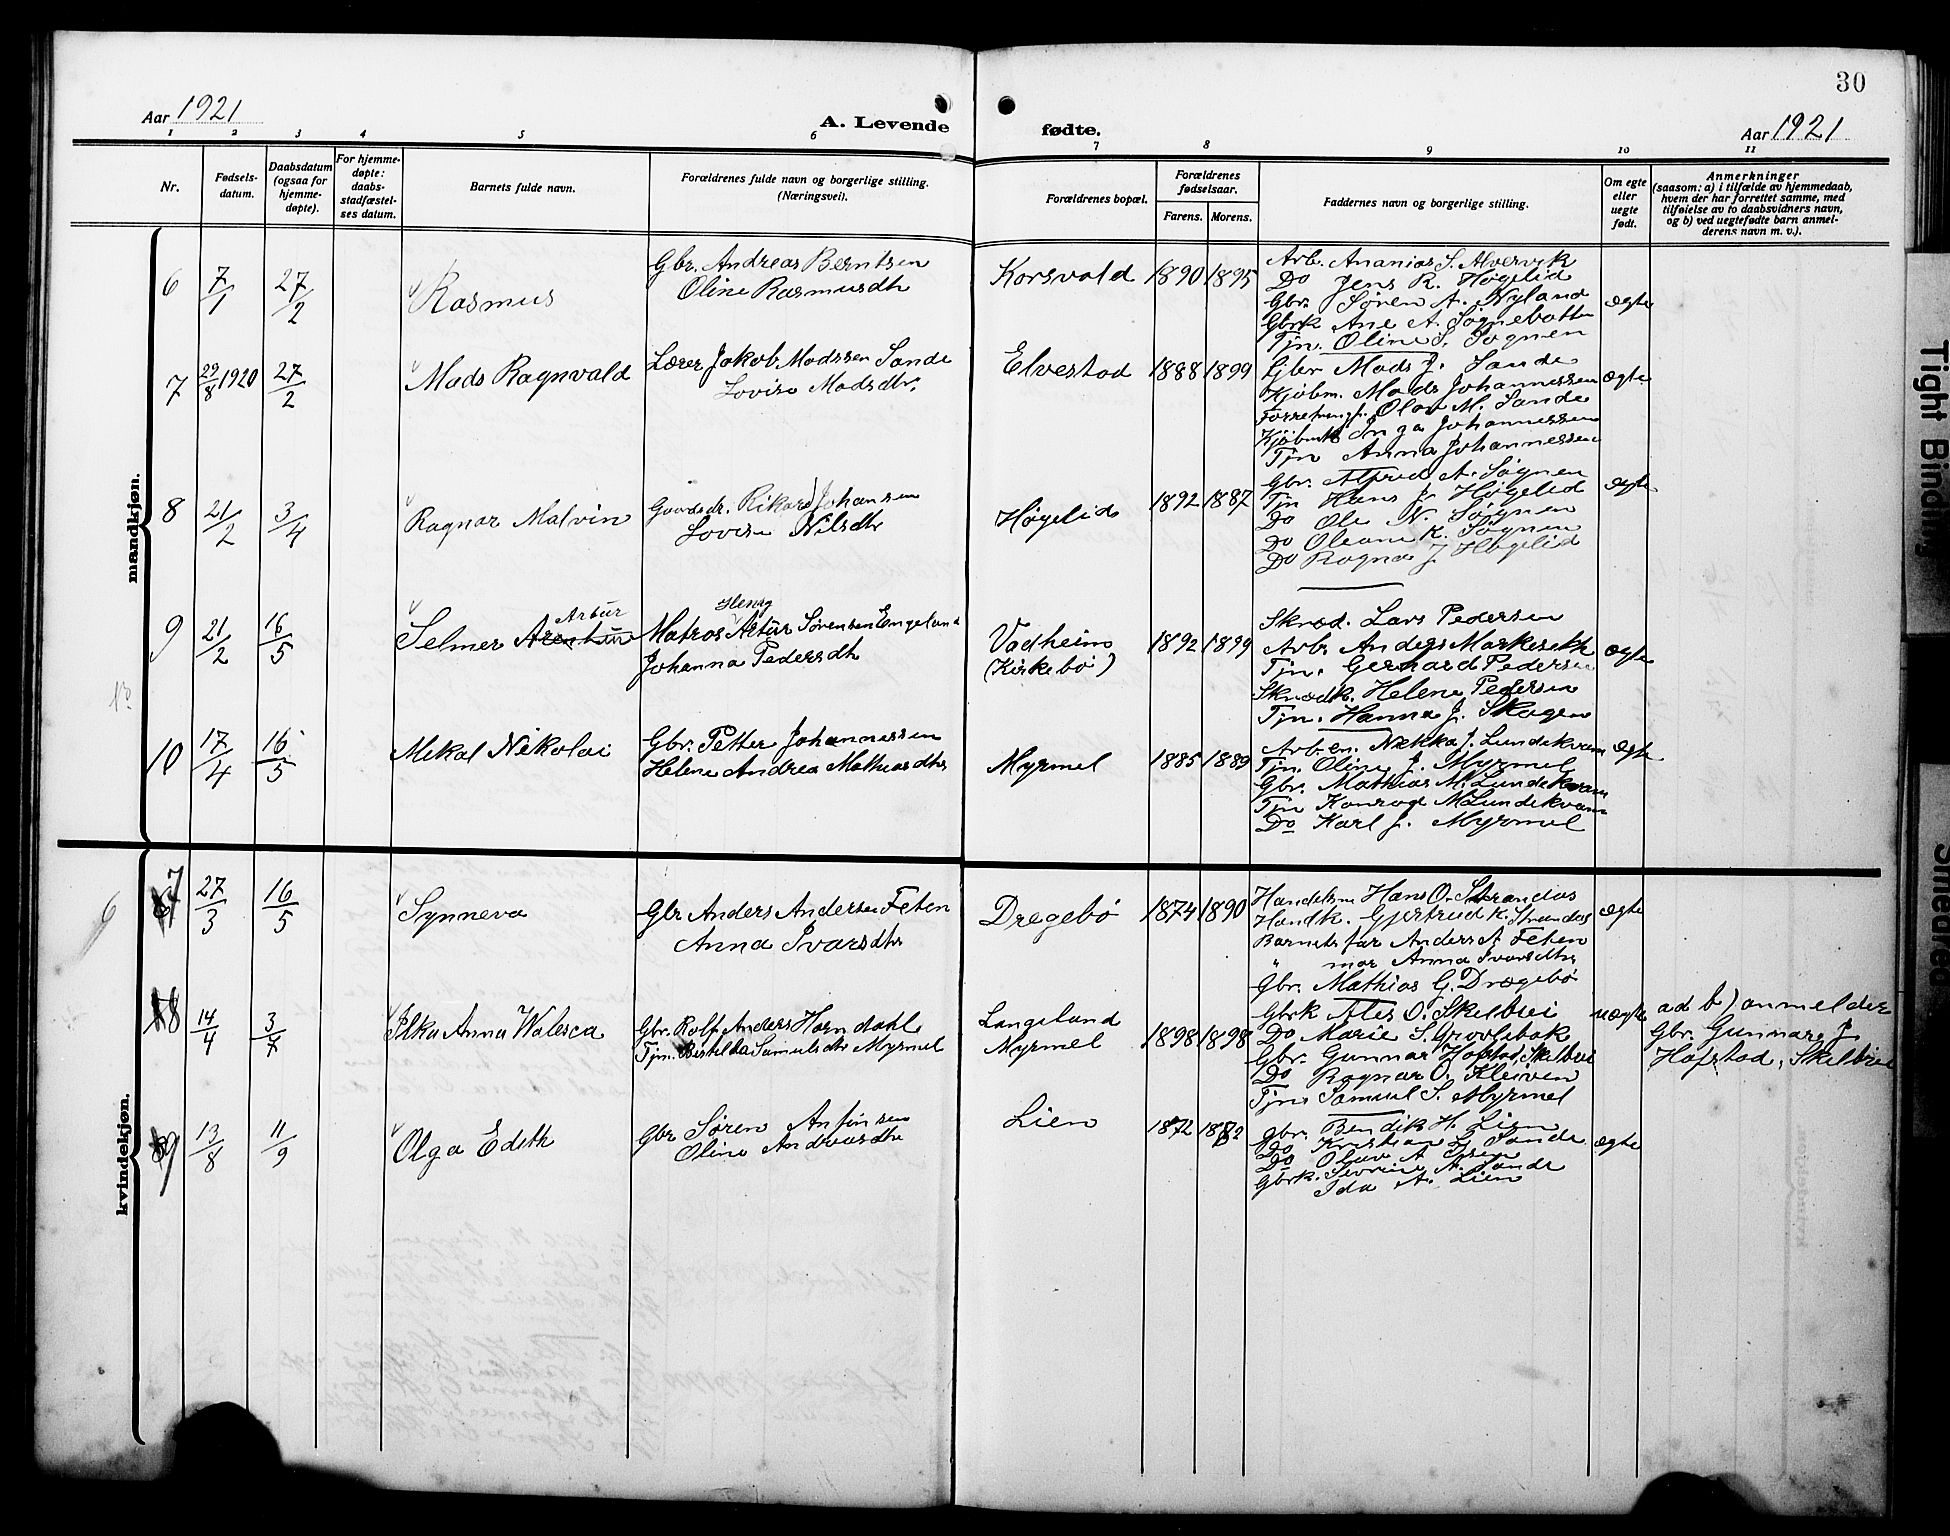 30
Aar 1921
A. Levende fødte.
Aar 1921
1 2 3 4 5 6 7 8 9 10 11
Nr.
Fødsels-
datum.
Daabsdatum
(ogsaa for
hjemme-
døpte).
For hjemme-
døpte:
daabs-
stadfæstel-
ses datum.
Barnets fulde navn.
Forældrenes fulde navn og borgerlige stilling.
(Næringsvei).
Forældrenes bopæl.
Forældrenes
fødselsaar.
Farens. Morens.
Faddernes navn og borgerlige stilling.
Om egte
eller
uegte
født.
Anmerkninger
(saasom: a) i tilfælde av hjemmedaab,
hvem der har forrettet samme, med
tilføielse av to daabsvidners navn,
og b) ved uegtefødte barn anmel-
derens navn m. v.).
mandkjøn.
6 7/1 27/2 Rasmus
Gbr. Andreas Berntsen
Oline Rasmusdtr
Korsvold 1890 1895
Arb. Ananias S. Alvervik
Do Jens R. Høgelid
Gbr. Søren A. Nyland
Gbrk Ane A. Søgnebotten
Tjn. Oline S. Søgnen
ægte
7 29/8 1920 27/2 Mads Ragnvald
Lærer Jakob Madssen Sande
Lovise Madsdtr.
Elvestad 1888 1899
Gbr Mads J. Sande
Kjøbm. Mads Johannessen
Olav M. Sande
Inga Johannessen
Tjn Anna Johannessen
ægte
8 21/2 3/4 Ragnar Malvin
Gaardsdr. Rikard Johansen
Lovise Nilsdtr
Høgelid 1892 1887
Gbr. Alfred A. Søgnen
Tjn Hans J. Høgelid
Do Ole N. Søgnen
Do Oleane K. Søgnen
Do Ragna J. Høgelid
ægte
9 21/2 16/5 Selmer Artur
Henry
Matros Artur Sørensen Engeland
Johanna Pedersdtr
Vadheim
(Kirkebø)
1892 1899
Skræd. Lars Pedersen
Arb. Anders
Tjn. Gerhard Pedersen
Skrædk. Helene Pedersen
Tjn. Hanna J. Skogen
ægte
10 17/4 16/5 Mikal Nikolai
Gbr. Petter Johannessen
Helene Andrea Mathiasdtr
Myrmel 1885 1889
Arb. en. J. Lundekvam
Tjn. Oline J. Myrmel
Gbr. Mathias M. Lundekvam
Tjn Konrad M Lundekvam
Do Karl J. Myrmel
ægte
kvindekjøn.
6
7 27/3 16/5 Synneva
Gbr Anders Andersen Feten
Anna Ivarsdtr
Dregebø 1874 1890
Handelsm Hans O. Strandos
Handk. Gjertrud K. Strandos
Barnets far Anders A Feten
" mor Anna Ivarsdtr
Gbr. Mathias G. Drægebø
ægte
8 14/4 3/7 Ilka Anna Walesca
Gbr. Rolf Anders Horndahl
Tjn. Bertilda Samuelsdtr Myrmel
Langeland
Myrmel
1898 1898
Gbrk Ales O. Skelbrei
Do Marie S.
Gbr. Gunnar Hofstad, Skelbrei
Do Ragnar O. Kleiven
Tjn. Samuel S. Myrmel
uægte
ad b) anmelder
Gbr. Gunnar J.
Hofstad, Skelbrei
9 13/8 11/9 Olga Edith
Gbr Søren Anfinsen
Oline Andreasdtr
Lien 1872 1882
Gbr. Bendik H. Lien
Do Kristian L. Sande
Do Olav A.
Gbrk. Severine A. Sande
Ida A. Lien
ægte
Tight Binding